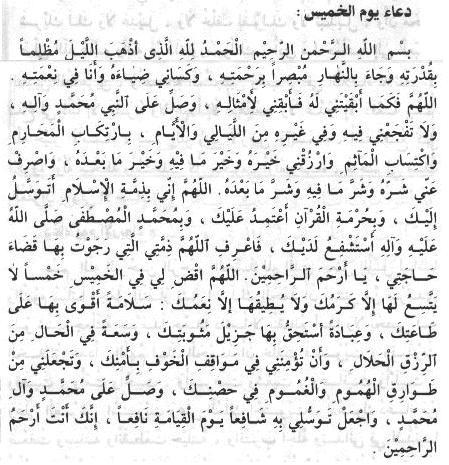 دعاء يوم الخميس :
بِسْمِ اللهِ الرَّحْمٰنِ الرَّحِيْمِ الْحَمْدُ لِلّٰهِ الَّذِى أَذْهَبَ اللَّيْلَ مُظْلِماً
بِقُدْرَتِهِ وَجَاءَ بِالنَّهَارِ مُبْصِراً بِرَحْمَتِهِ ، وَكَسَانِي ضِيَاءَهُ وَأَنَا فِي نِعْمَتِهِ .
اللَّهُمَّ فَكَمَا أَبْقَيْتَنِي لَهُ فَأَبْقِنِي لأَمْثَالِهِ ، وَصَلِّ عَلَى النَّبِي مُحَمَّدٍ وَآلِهِ ،
وَلَا تَفْجَعْنِي فِيهِ وَفِي غَيْرِهِ مِنَ اللَّيَالِي وَالْأَيَّامِ ، بِارْتِكَابِ الْمَحَارِمِ
وَاكْتِسَابِ الْمَآثِمِ وَارْزُقْنِي خَيْرَهُ وَخَيْرَ مَا فِيهِ وَخَيْرَ مَا بَعْدَهُ ، وَاصْرِفْ
عَنِّي شَرَّهُ وَشَرَّ مَا فِيهِ وَشَرَّ مَا بَعْدَهُ. اللَّهُمَّ إِنِّي بِذِمَّةِ الْإِسْلَامِ أَتَوَسَّلُ
إِلَيْكَ ، وَبِحُرْمَةِ الْقُرْآنِ أَعْتَمِدُ عَلَيْكَ ، وَبِمُحَمَّدٍ الْمُصْطَفَى صَلَّى اللهُ
عَلَيْهِ وَآلِهِ أَسْتَشْفِعُ لَدَيْكَ ، فَاعْرِفِ اللَّهُمَّ ذِمَّتِي الَّتِي رَجَوْتُ بِهَا قَضَاءَ
حَاجَتِي ، يَا أَرْحَمَ الرَّاحِمِيْنَ. اللَّهُمَّ اقْضِ لِي فِي الْخَمِيْسِ خَمْساً لَا
يَتَّسِعُ لَهَا إِلَّا كَرَمُكَ وَلَا يُطِيقُهَا إِلَّا نِعَمُكَ : سَلَامَةً أَقْوَى بِهَا عَلَى
طَاعَتِكَ ، وَعِبَادَةً أَسْتَحِقُّ بِهَا جَزِيْلَ مَثُوبَتِكَ ، وَسَعَةً فِي الْحَالِ مِنَ
الرِّزْقِ الْحَلَالِ ، وَأَنْ تُؤْمِنَنِي فِي مَوَاقِفِ الْخَوْفِ بِأَمْنِكَ ، وَتَجْعَلَنِي مِنْ
طَوَارِقِ الْهُمُومِ وَالْغُمُومِ فِي حِصْنِكَ ، وَصَلِّ عَلَى مُحَمَّدٍ وَآلِ
مُحَمَّدٍ ، وَاجْعَلْ تَوَسُّلِي بِهِ شَافِعاً يَوْمَ الْقِيَامَةِ نَافِعاً ، إِنَّكَ أَنْتَ أَرْحَمُ
الرَّاحِمِيْنَ .